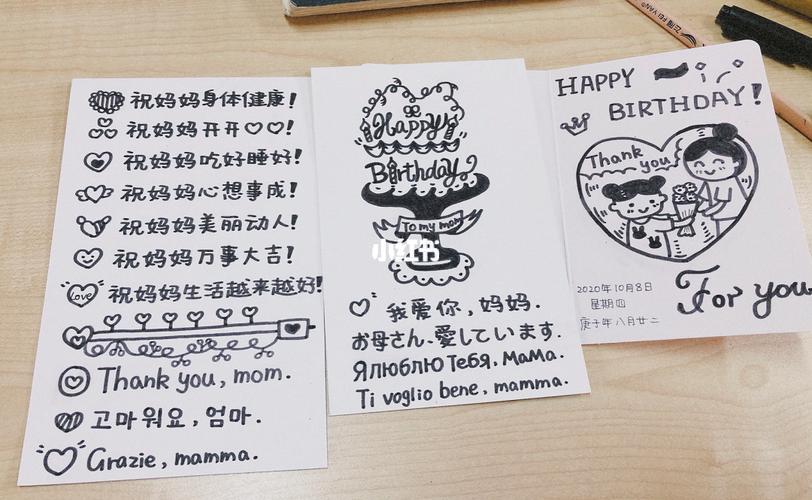 祝妈妈身体健康!
祝妈妈开开♡♡!
祝妈妈吃好睡好!
祝妈妈心想事成!
祝妈妈美丽动人!
祝妈妈万事大吉!
Love 祝妈妈生活越来越好!
Thank you, mom.
고마워요, 엄마.
Grazie, mamma.
Happy
Birthday
To my mom
小红书
我爱你,妈妈.
お母さん、愛しています.
Я люблю Тебя, мама.
Ti voglio bene, mamma.
HAPPY
BIRTHDAY!
Thank
you
2020年10月8日
星期四
庚子年八月廿二
For you